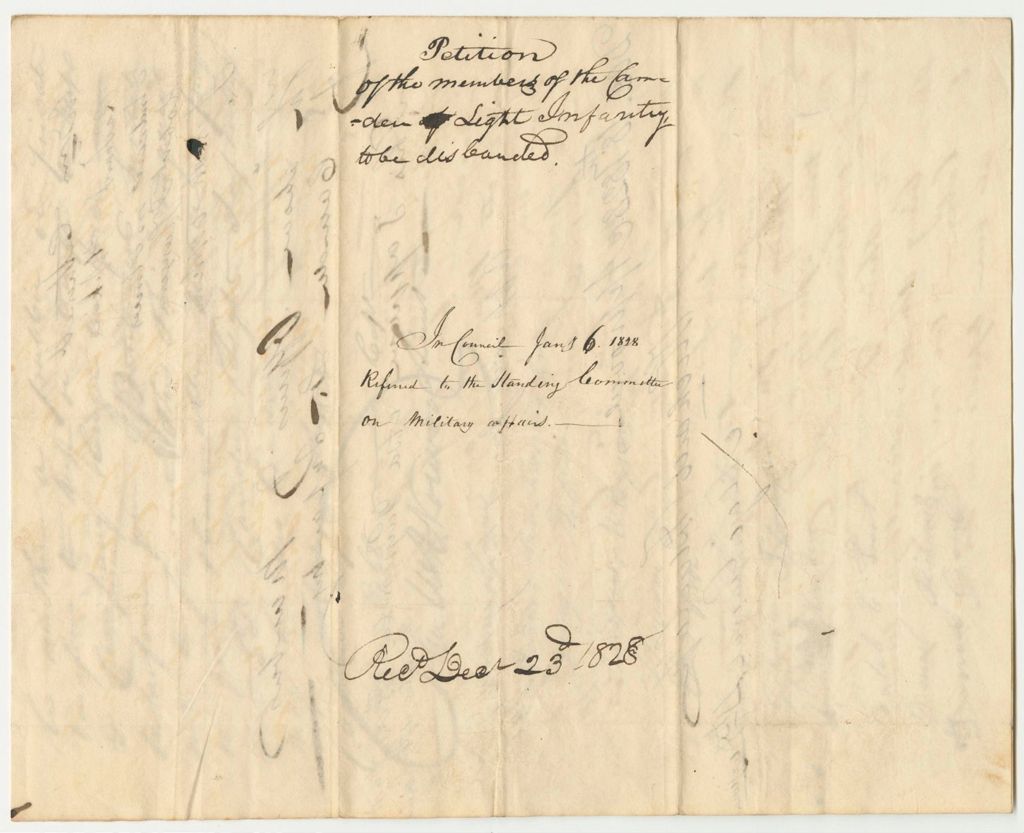 Petition
of the members of the Cam
-den Light Infantry
to be disbanded.
In Council Jany 6. 1828
Referred to the Standing Committee
on Military affairs.
Recd Decr 23d 1828